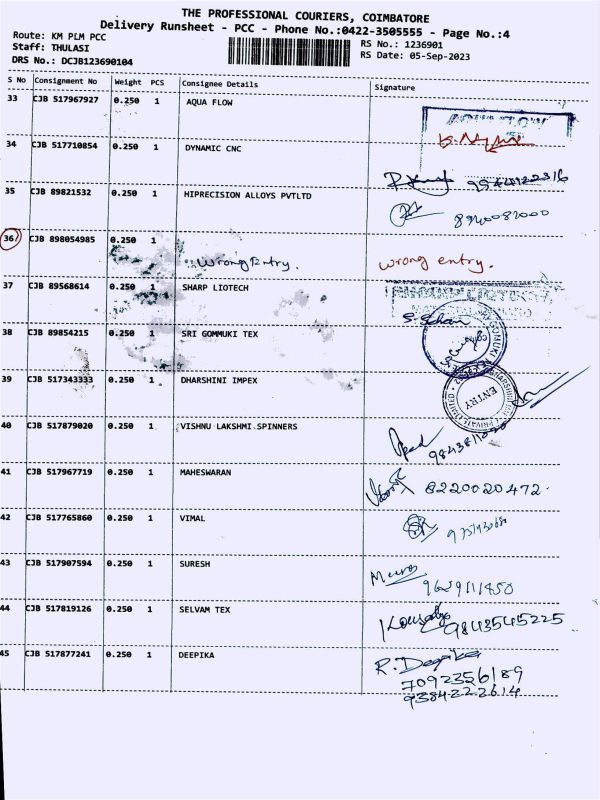 THE PROFESSIONAL COURIERS, COIMBATORE
Delivery Runsheet - PCC - Phone No.:0422-3505555 - Page No.:4
Route: KM PLM PCC
RS No.: 1236901
Staff: THULASI
RS Date: 05-Sep-2023
DRS No.: DCJB123690104
S No Consignment No Weight PCS Consignee Details Signature
33 CJB 517967927 0.250 1 AQUA FLOW
34 CJB 517710854 0.250 1 DYNAMIC CNC
35 CJB 89821532 0.250 1 HIPRECISION ALLOYS PVTLTD
8940082000
36 CJB 898054985 0.250 1 Wrong Entry. wrong entry.
37 CJB 89568614 0.250 1 SHARP LIOTECH
38 CJB 89854215 0.250 1 SRI GOMMUKI TEX
39 CJB 517343333 0.250 1 DHARSHINI IMPEX
ENTRY
40 CJB 517879020 0.250 1 VISHNU LAKSHMI SPINNERS
41 CJB 517967719 0.250 1 MAHESWARAN
8220020472.
42 CJB 517765860 0.250 1 VIMAL
43 CJB 517907594 0.250 1 SURESH
9629111850
44 CJB 517819126 0.250 1 SELVAM TEX
9843545225
45 CJB 517877241 0.250 1 DEEPIKA
R. Deepika
7092356189
9384222614